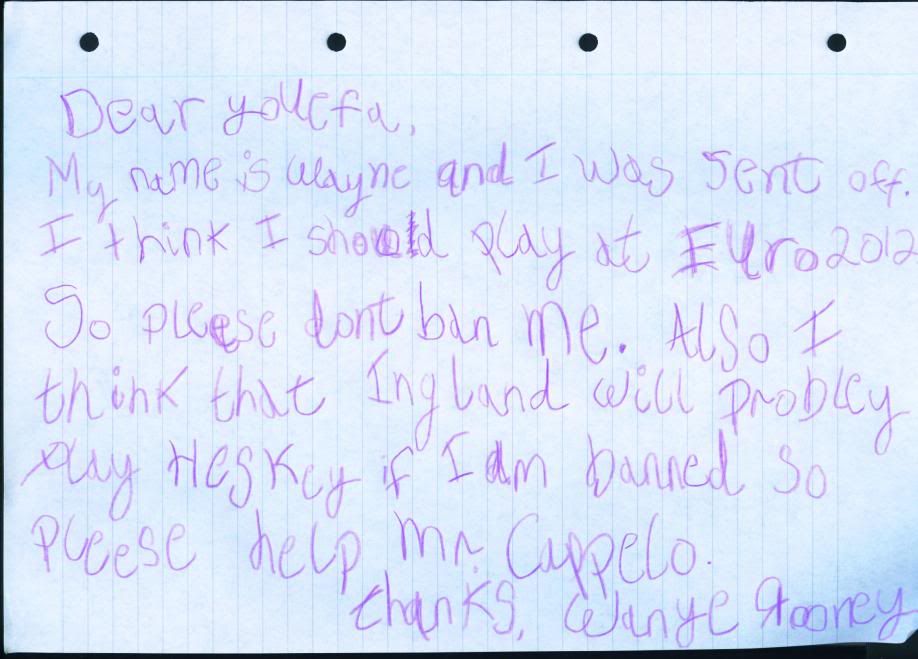 Dear youefa,
My name is Wayne and I was sent off.
I think I should play at Euro2012
So pleese dont ban me. Also I
think that Ingland will probley
play Heskey if I am banned so
pleese help Mr. Cappelo.
thanks, Wanye Rooney